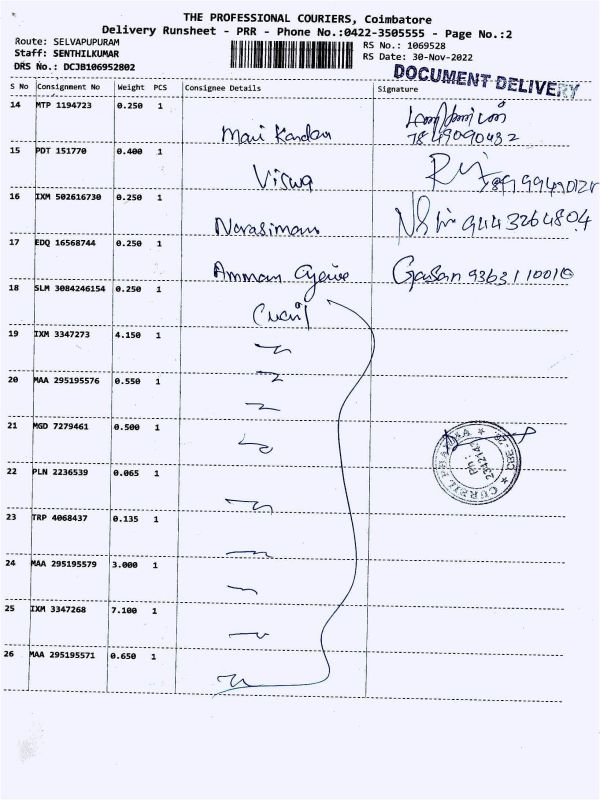 THE PROFESSIONAL COURIERS, Coimbatore
Delivery Runsheet - PRR - Phone No.:0422-3505555 - Page No.:2
Route: SELVAPUPURAM
Staff: SENTHILKUMAR
DRS No.: DCJB106952802
RS No.: 1069528
RS Date: 30-Nov-2022
DOCUMENT DELIVERY
S No Consignment No Weight PCS Consignee Details Signature
14 MTP 1194723 0.250 1
Mari Kandan
7849090432
15 PDT 151770 0.400 1
Viswa
16 IXM 502616730 0.250 1
Narasiman 9443264804
17 EDQ 16568744 0.250 1
Amman 9363110010
18 SLM 3084246154 0.250 1
19 IXM 3347273 4.150 1
20 MAA 295195576 0.550 1
21 MGD 7279461 0.500 1
22 PLN 2236539 0.065 1
23 TRP 4068437 0.135 1
24 MAA 295195579 3.000 1
25 IXM 3347268 7.100 1
26 MAA 295195571 0.650 1
Ph :
2342143